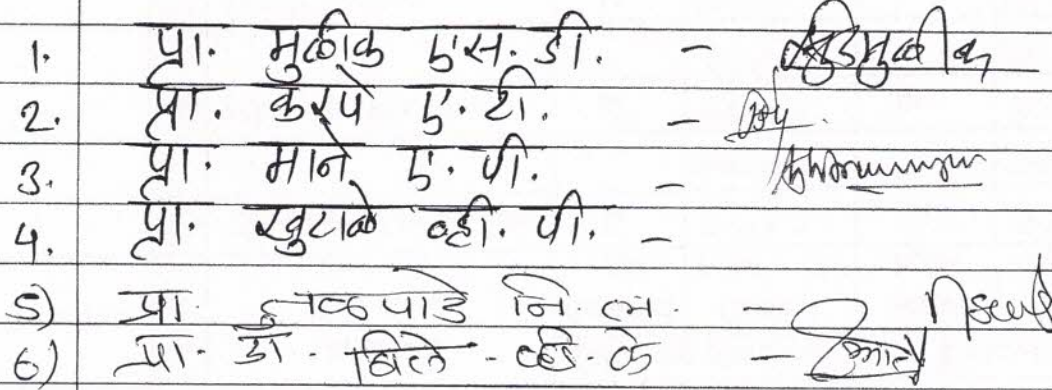 1. प्रा. मुळीक एस. डी. -
2. प्रा. करपे ए. टी. -
3. प्रा. माने ए. पी. -
4. प्रा. खुटाळे व्ही. पी. -
5) प्रा. नि. ल. -
6) प्रा. डॉ. बिले - व्ही. के -